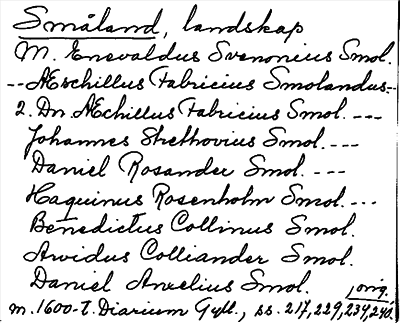 Småland, landskap
M. Enevaldus Svenonius Smol.
-- Æschillus Fabricius Smolandus --
2. Dn Æchillus Fabricius Smol. ---
Johannes Strethovius Smol. ---
Daniel Rosander Smol. ---
Haquinus Rosenholm Smol. ---
Benedictus Collinus Smol.
Arvidus Colliander Smol.
Daniel Anxelius Smol.
m. 1600-t. Diarium Gyll., ss. 217, 229, 234, 240. orig.